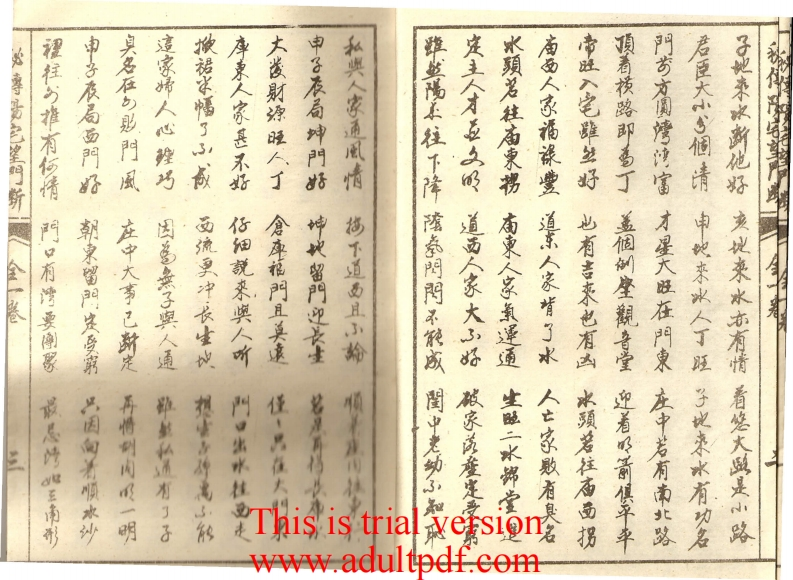 子地來水斷他好　亥地來水亦有情　着悠大路是小路
君臣大小分個清　申地來水人丁旺　子地來水有功名
門前方圓灣湾富　才星大旺在門東　庄中若有南北路
頂着横路即為丁　蓋個倒坐觀音堂　迎着明前俱平平
帝旺入宅雖然好　也有吉來也有凶　水頭若往庙西拐
庙西人家福祿豐　道東人家背了水　人亡家敗有臭名
水頭若往庙東拐　庙東人家氣運通　生旺二水歸堂進
定主人才並文明　道西人家大不好　破家落產定受窮
雖然陽氣往下降　陰氣閉門不能成　閨中老幼不知恥
秘傳陽宅望門斷　全一卷　二
私與人家通風情　接下道西且不論
申子辰局坤門好　坤地留門迎長生
大發財源旺人丁　倉庫租門且莫遠　門大
庫東人家甚不好　仔細說來與人听　門口出水往西走
掀裙來幡了不成　西流更冲長生地
這家婦人心理巧　因為無子與人通　雖然私通有了子
臭名在外敗門風　庄中大事已斷定　再將到内明一明
申子辰局西門好　朝東留門定受窮　只因向着順水沙
裡往外推有何情　門口有湾要團聚　最忌湾如三角形
秘傳陽宅望門斷　全一卷　三
This is trial version
www.adultpdf.com